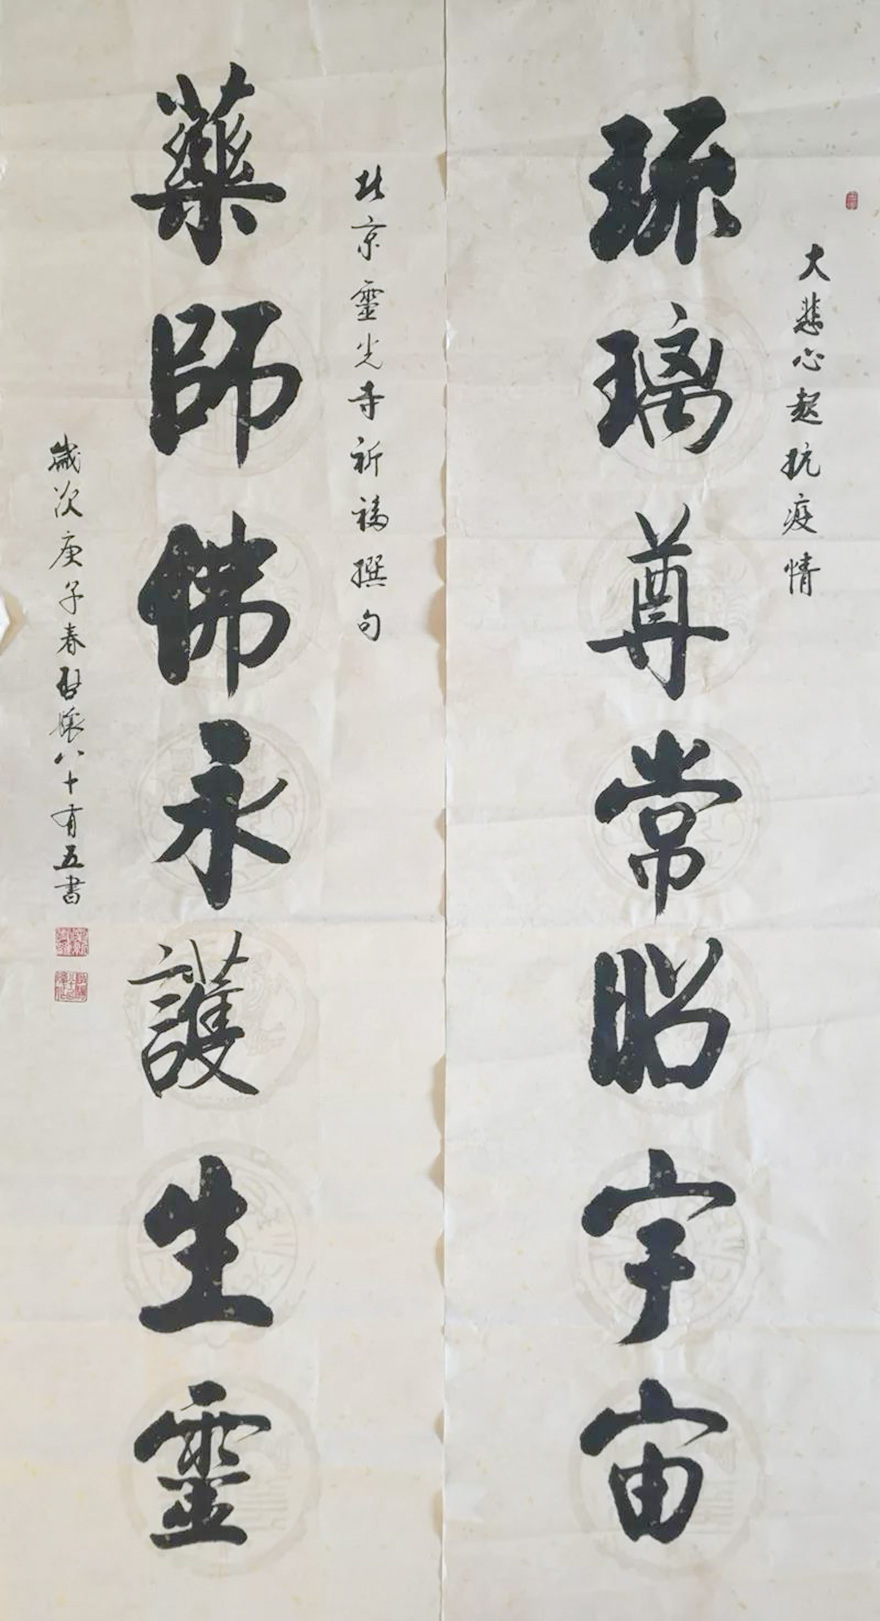 大悲心起抗疫情
琉璃尊常昭宇宙
北京靈光寺祈福撰句
藥師佛永護生靈
歲次庚子春啟驤八十有五書